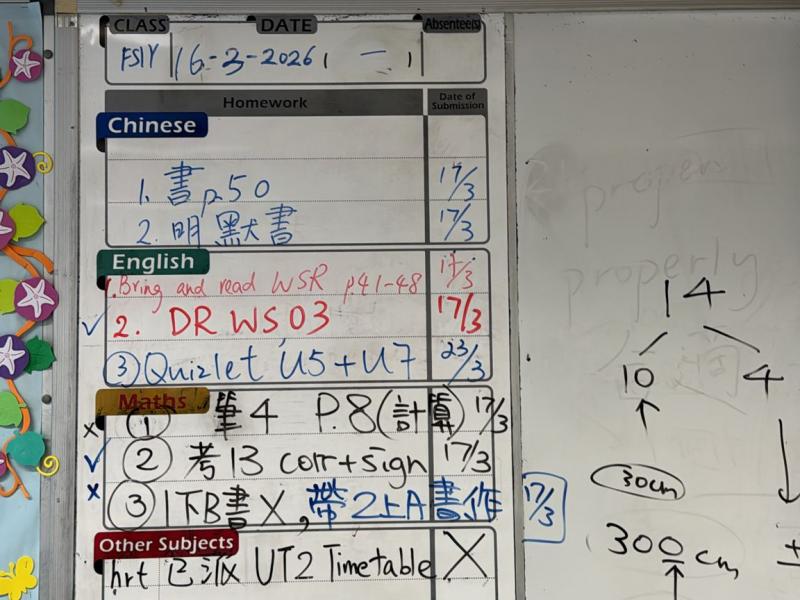 CLASS DATE Absentee(s)
16-3-2026 ( 一 )
Homework Date of Submission
Chinese
1. 書p.50 17/3
2. 明默書 17/3
English
1. Bring and read WSR p.41-48 17/3
✓ 2. DR WS 03 17/3
③ Quizlet U5+U7 23/3
Maths
x ① 筆4 P.8(計算) 17/3
✓ ② 考13 corr+sign 17/3
x ③ 1下B書X, 帶2上A書作 17/3
Other Subjects
hrt 已派 UT2 Timetable X
properly
14
10 4
30cm
300cm